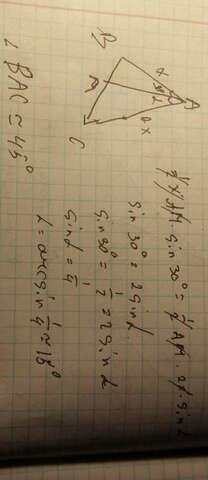 B
A
x
30°
α
M
2x
C
½ x · AM · sin 30° = ½ AM · 2x · sin α
sin 30° = 2 sin α
sin 30° = ½ = 2 sin α
sin α = ¼
α = arcsin ¼ ≈ 15°
∠ BAC ≈ 45°